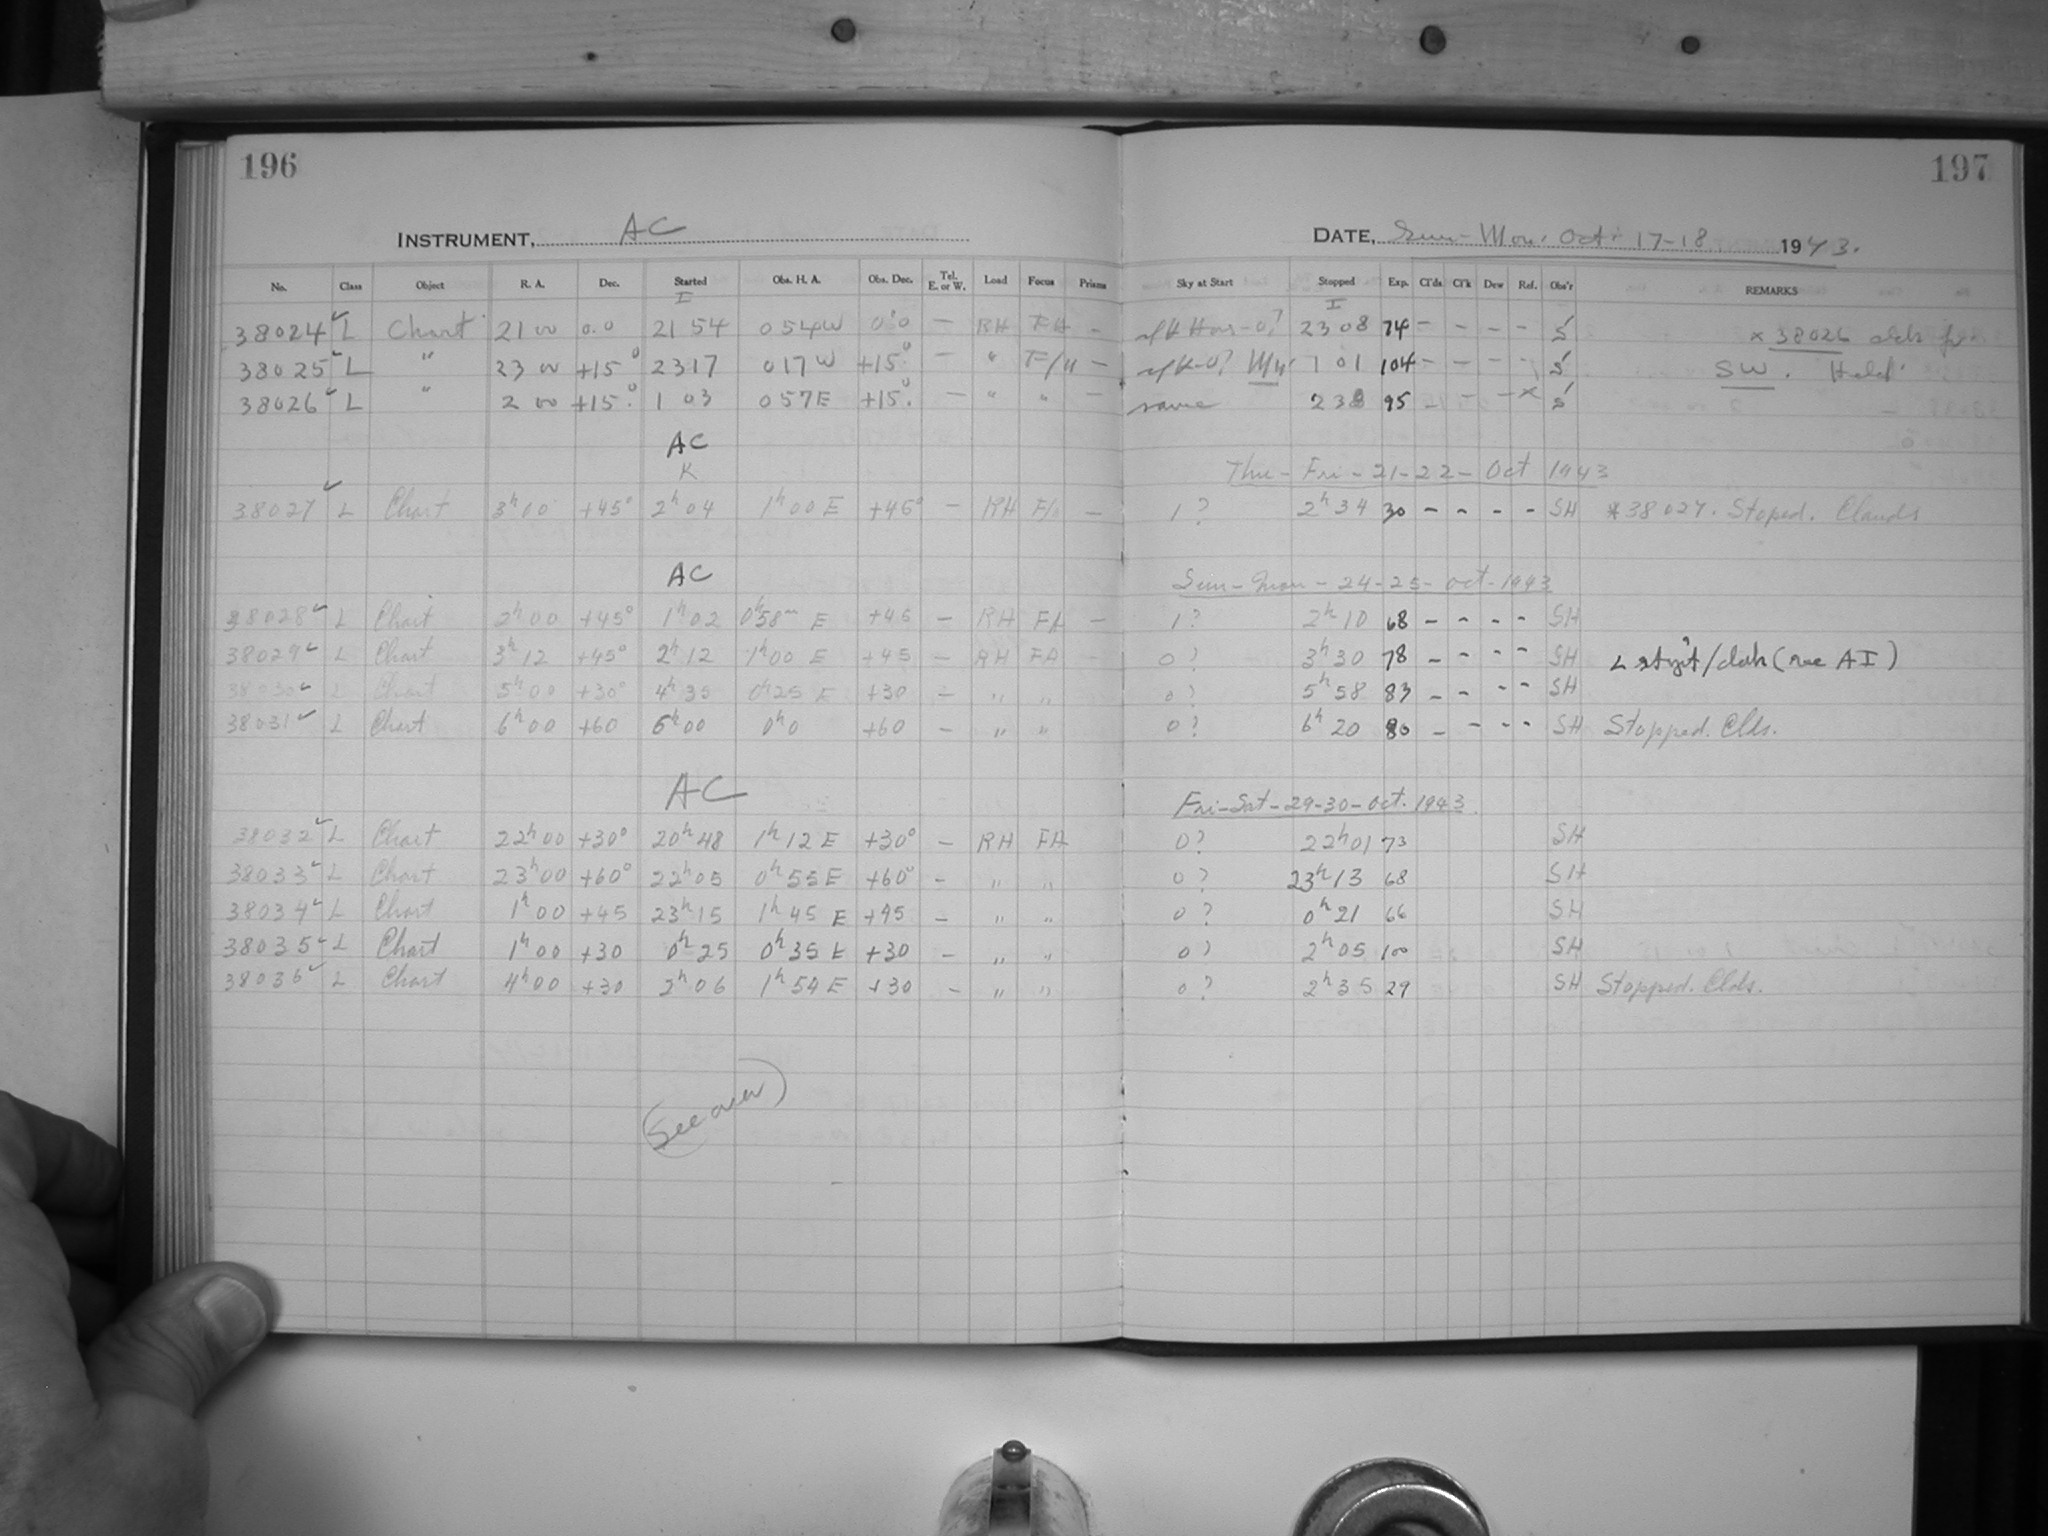 196
197
INSTRUMENT, AC
DATE, Sun - Mon. Oct. 17-18 1943.
No. Class Object R. A. Dec. Started Obs. H. A. Obs. Dec. Tel. E. or W. Load Focus Prisms Sky at Start Stopped Exp. Cl'ds Cl'k Dew Ref. Obs'r REMARKS
I I
38024 ✓ L Chart 21 00 0.0 21 54 0 54 W 0°0 — RH FH - 2308 74 - - - - S' × 38026
38025 ✓ L " 23 00 +15° 23 17 0 17 W +15° — " F/H — 1 01 104 - - - - S' SW. Held
38026 ✓ L " 2 00 +15° 1 03 0 57 E +15° — " " — same 238 95 - - - × S'
AC
K Thu - Fri - 21-22 - Oct 1943
38027 ✓ L Chart 3h 00 +45° 2h 04 1h 00 E +45° — RH F/H — 1? 2h 34 30 - - - - SH *38027. Stoped. Clouds
AC Sun - Mon - 24-25 - Oct - 1943
38028 ✓ L Chart 2h 00 +45° 1h 02 0h 58m E +45 — RH FH — 1? 2h 10 68 - - - - SH
38029 ✓ L Chart 3h 12 +45° 2h 12 1h 00 E +45 — RH FH — 0? 3h 30 78 - - - - SH
38030 ✓ L Chart 5h 00 +30° 4h 35 0h 25 E +30 — " " 0? 5h 58 83 - - - - SH
38031 ✓ L Chart 6h 00 +60 6h 00 0h 0 +60 — " " 0? 6h 20 80 - - - - SH Stopped. Clds.
AC Fri - Sat - 29-30 - Oct. 1943
38032 ✓ L Chart 22h 00 +30° 20h 48 1h 12 E +30° — RH FH 0? 22h 01 73 SH
38033 ✓ L Chart 23h 00 +60° 22h 05 0h 55 E +60° — " " 0? 23h 13 68 SH
38034 ✓ L Chart 1h 00 +45 23h 15 1h 45 E +45 — " " 0? 0h 21 66 SH
38035 ✓ L Chart 1h 00 +30 0h 25 0h 35 E +30 — " " 0? 2h 05 100 SH
38036 ✓ L Chart 4h 00 +30 2h 06 1h 54 E +30 — " " 0? 2h 35 29 SH Stopped. Clds.
(See over)